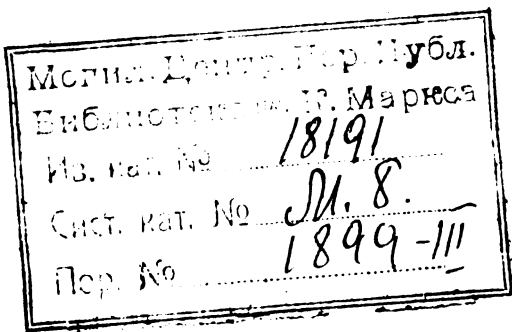 Могил. Центр. Нар. Публ.
Библиотека им. К. Маркса
Ив. кат. № 18191
Сист. кат. № М. 8.
Пор. № 1899-III